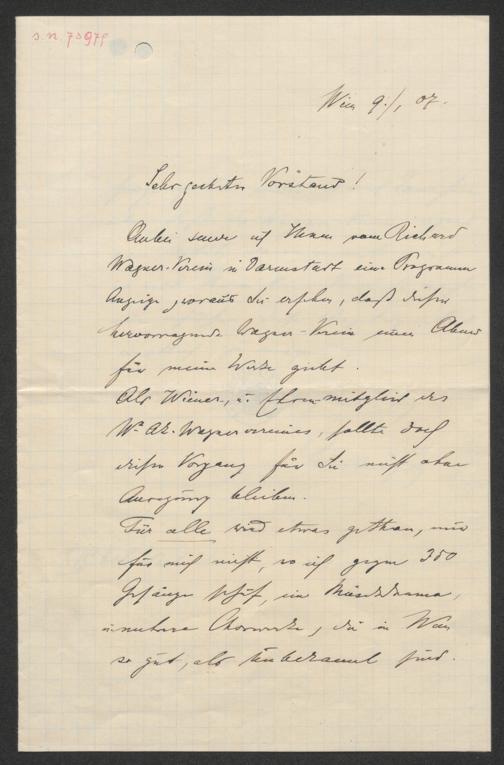 S.N. 73979
Wien 9./, 07.
Sehr geehrter Vorstand!
Anbei sende ich Ihnen vom Richard
Wagner-Verein in Darmstadt eine Programm
Anzeige, woraus Sie ersehen, daß dieser
hervorragende Wagner-Verein einen Abend
für meine Werke giebt.
Als Wiener, u. Ehren-mitglied des
Wr. Ak. Wagnervereines, sollte doch
dieser Vorgang für Sie nicht ohne
Anregung bleiben.
Für alle wird etwas gethan, nur
für mich nicht, wo ich gegen 350
Gesänge schuf, ein Musikdrama,
u. mehrere Chorwerke, die in Wien
so gut, als unbekannt sind.